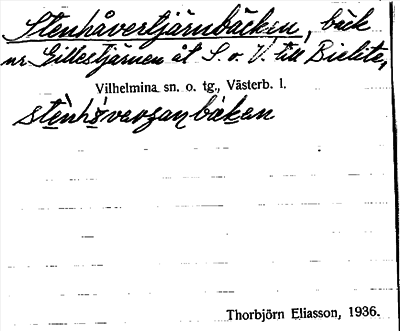 Stenhåvertjärnbäcken, bäck
nr. Gillestjärnen åt S. o. V. till Bielite,
Vilhelmina sn. o. tg., Västerb. l.
Thorbjörn Eliasson, 1936.